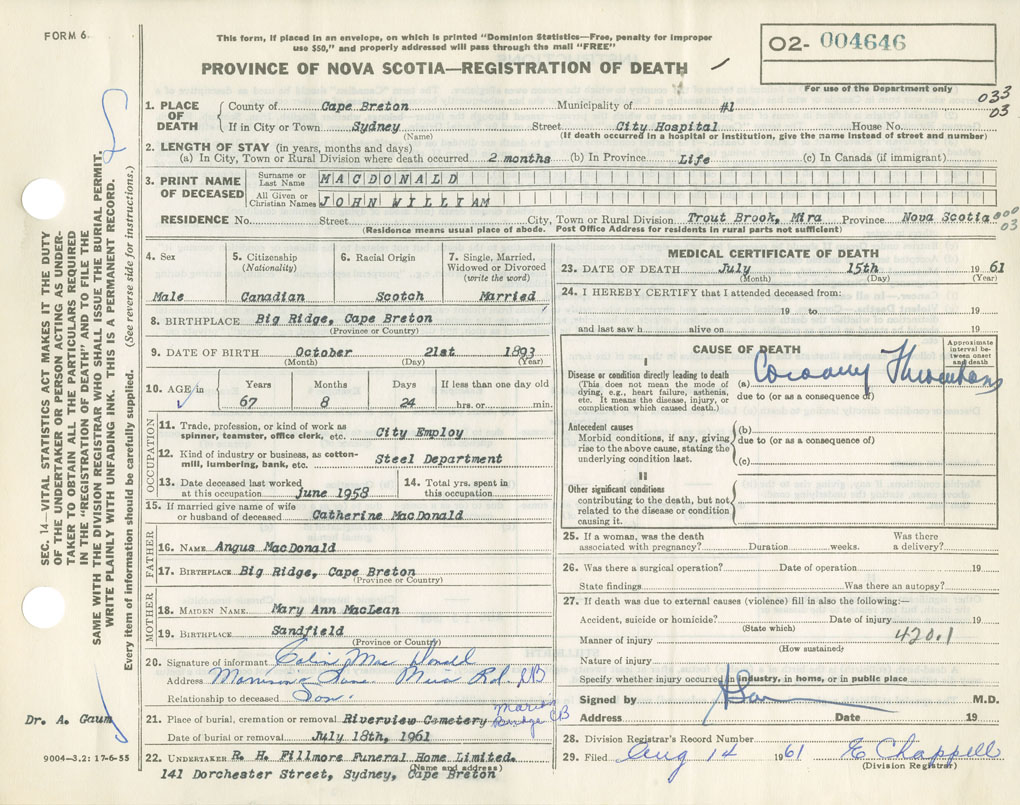 FORM 6
This form, if placed in an envelope, on which is printed "Dominion Statistics—Free, penalty for improper
use $50," and properly addressed will pass through the mail "FREE"
PROVINCE OF NOVA SCOTIA—REGISTRATION OF DEATH
02- 004646
For use of the Department only
033
03
1. PLACE OF DEATH
County of Cape Breton Municipality of #1
If in City or Town Sydney Street City Hospital House No.
(Name) (If death occurred in a hospital or institution, give the name instead of street and number)
2. LENGTH OF STAY (in years, months and days)
(a) In City, Town or Rural Division where death occurred 2 months (b) In Province Life (c) In Canada (if immigrant)
3. PRINT NAME OF DECEASED
Surname or Last Name MACDONALD
All Given or Christian Names JOHN WILLIAM
RESIDENCE No. Street City, Town or Rural Division Trout Brook, Mira Province Nova Scotia 000
03
(Residence means usual place of abode. Post Office Address for residents in rural parts not sufficient)
4. Sex
Male
5. Citizenship
(Nationality)
Canadian
6. Racial Origin
Scotch
7. Single, Married,
Widowed or Divorced
(write the word)
Married
8. BIRTHPLACE Big Ridge, Cape Breton
(Province or Country)
9. DATE OF BIRTH October 21st 1893
(Month) (Day) (Year)
10. AGE in
Years Months Days If less than one day old
67 8 24 hrs. or min.
OCCUPATION
11. Trade, profession, or kind of work as
spinner, teamster, office clerk, etc. City Employ
12. Kind of industry or business, as cotton-
mill, lumbering, bank, etc. Steel Department
13. Date deceased last worked
at this occupation June 1958
14. Total yrs. spent in
this occupation
15. If married give name of wife
or husband of deceased Catherine MacDonald
FATHER
16. NAME Angus MacDonald
17. BIRTHPLACE Big Ridge, Cape Breton
(Province or Country)
MOTHER
18. MAIDEN NAME Mary Ann MacLean
19. BIRTHPLACE Sandfield
(Province or Country)
20. Signature of informant Colin MacDonald
Address Mira Rd. CB
Relationship to deceased Son.
21. Place of burial, cremation or removal Riverview Cemetery Marion Bridge CB
Date of burial or removal July 18th, 1961
22. UNDERTAKER R. H. Fillmore Funeral Home Limited.
(Name and address)
141 Dorchester Street, Sydney, Cape Breton
MEDICAL CERTIFICATE OF DEATH
23. DATE OF DEATH July 15th 1961
(Month) (Day) (Year)
24. I HEREBY CERTIFY that I attended deceased from:
19 to 19
and last saw h alive on 19
CAUSE OF DEATH
Approximate
interval be-
tween onset
and death
I
Disease or condition directly leading to death
(This does not mean the mode of
dying, e.g., heart failure, asthenia,
etc. It means the disease, injury, or
complication which caused death.)
(a) Coronary Thrombosis
due to (or as a consequence of)
Antecedent causes
Morbid conditions, if any, giving
rise to the above cause, stating the
underlying condition last.
(b)
due to (or as a consequence of)
(c)
II
Other significant conditions
contributing to the death, but not
related to the disease or condition
causing it.
25. If a woman, was the death
associated with pregnancy? Duration weeks. Was there
a delivery?
26. Was there a surgical operation? Date of operation 19
State findings Was there an autopsy?
27. If death was due to external causes (violence) fill in also the following:—
Accident, suicide or homicide? Date of injury 19
(State which)
420.1
Manner of injury
(How sustained)
Nature of injury
Specify whether injury occurred in industry, in home, or in public place
Signed by M.D.
Address Date 19
28. Division Registrar's Record Number
29. Filed Aug 14 1961 E Chappell
(Division Registrar)
SEC. 14—VITAL STATISTICS ACT MAKES IT THE DUTY
OF THE UNDERTAKER OR PERSON ACTING AS UNDER-
TAKER TO OBTAIN ALL THE PARTICULARS REQUIRED
IN THE "REGISTRATION OF DEATH" AND TO FILE THE
SAME WITH THE DIVISION REGISTRAR WHO SHALL ISSUE THE BURIAL PERMIT.
WRITE PLAINLY WITH UNFADING INK. THIS IS A PERMANENT RECORD.
Every item of information should be carefully supplied. (See reverse side for instructions.)
Dr. A. Gaum
9004-3.2: 17-6-55